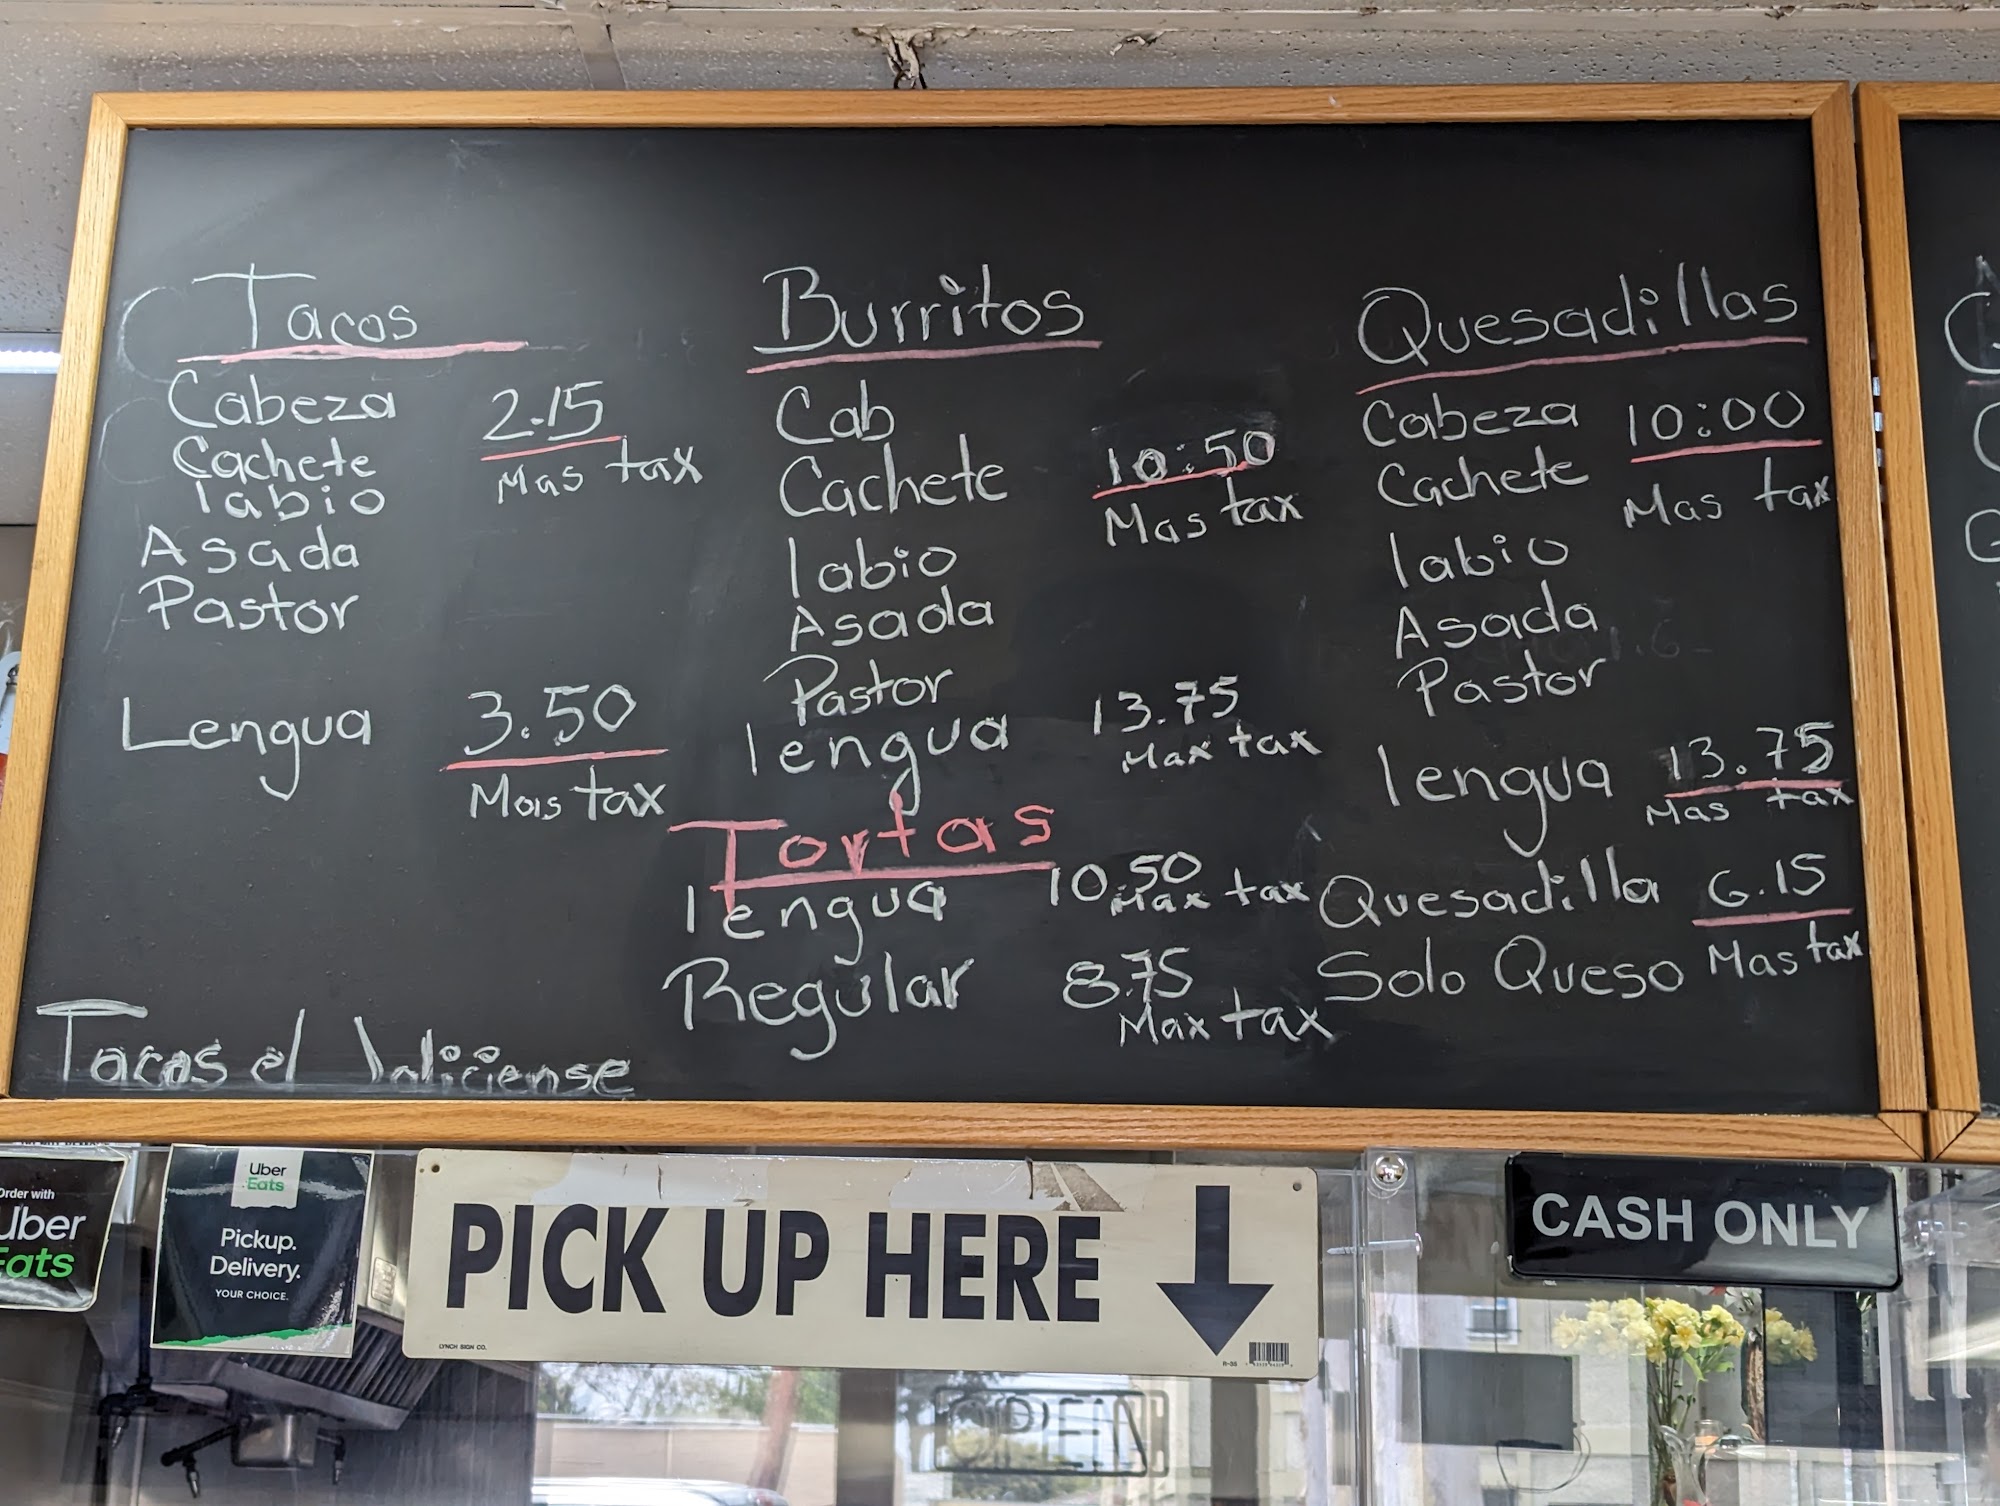 Tacos
Cabeza 2.15
Cachete Mas tax
labio
Asada
Pastor
Lengua 3.50
Mas tax
Tacos el Jaliciense
Burritos
Cab
Cachete 10:50
Mas tax
labio
Asada
Pastor
lengua 13.75
Max tax
Tortas
lengua 10.50
Max tax
Regular 8.75
Max tax
Quesadillas
Cabeza 10:00
Cachete Mas tax
labio
Asada
Pastor
lengua 13.75
Mas tax
Quesadilla 6.15
Solo Queso Mas tax
Order with
Uber
Eats
Uber
Eats
Pickup.
Delivery.
YOUR CHOICE.
PICK UP HERE
LYNCH SIGN CO.
R-35
CASH ONLY
OPEN